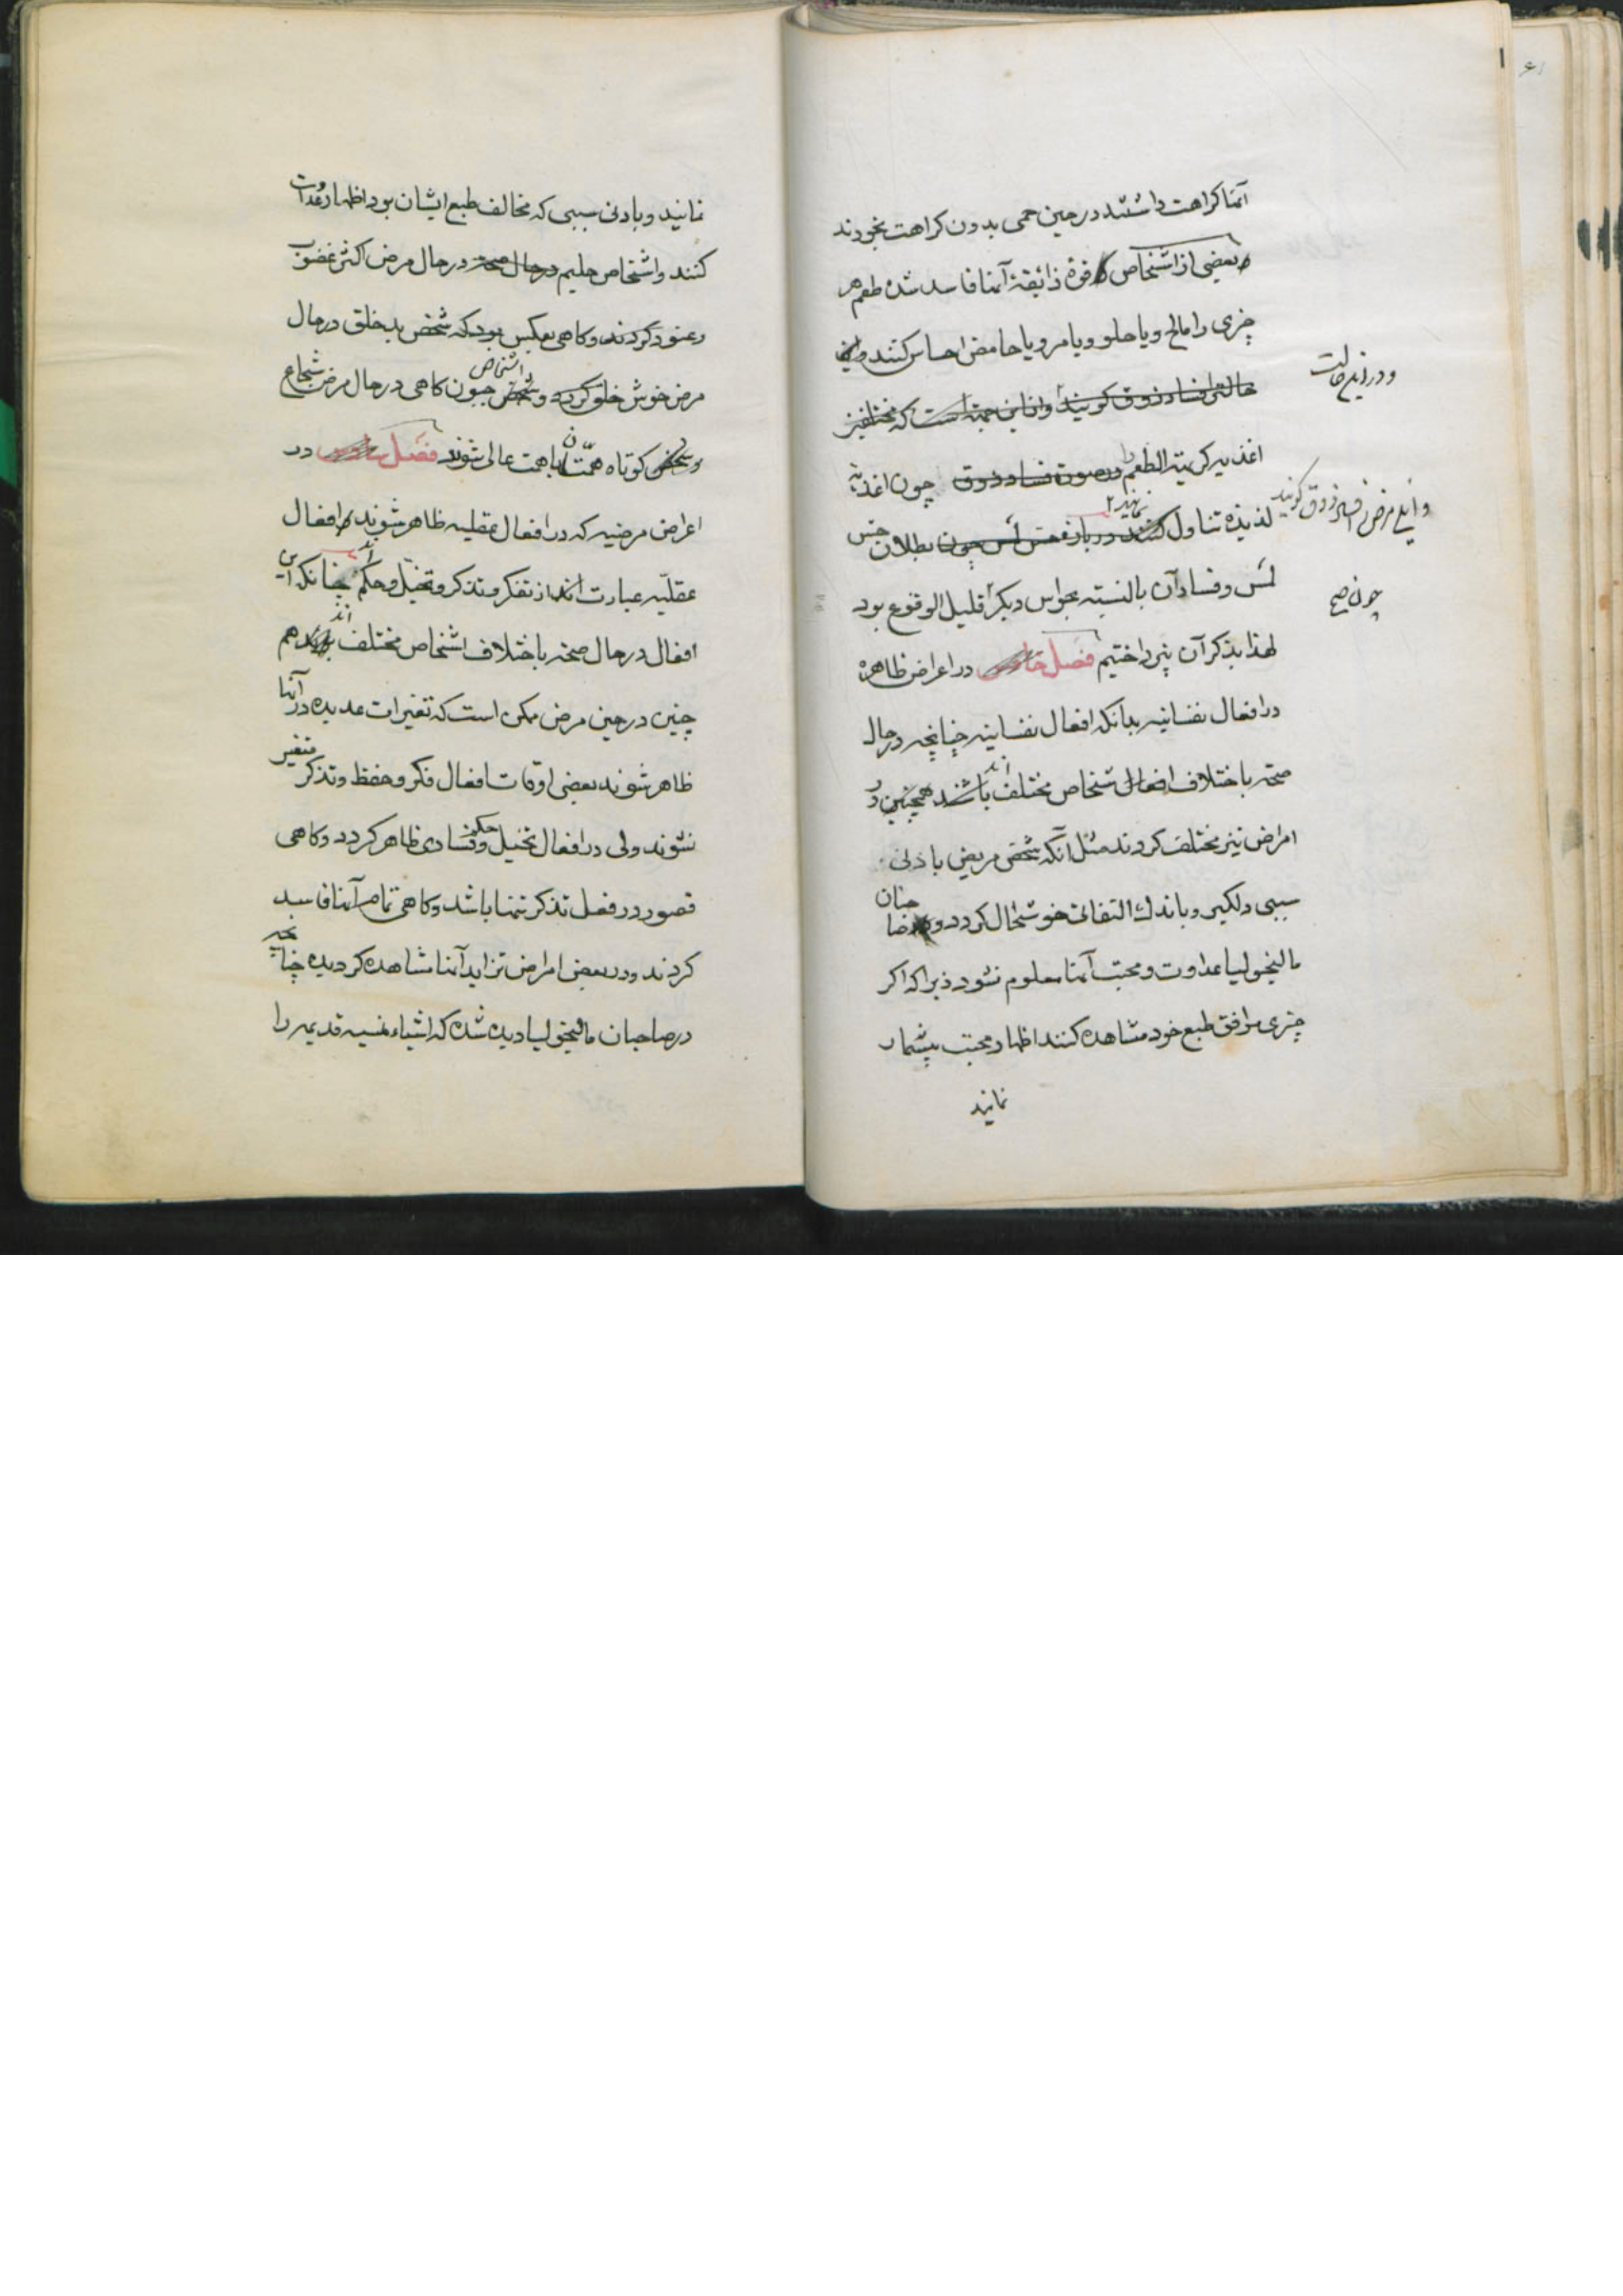 ۶۱
آنها کراهت داشتند در حین حمی بدون کراهت بخورند
بعضی از اشخاص قوهٔ ذائقهٔ آنها فاسد شده طعم هر
چیزی را مالح و یا حلو و یا مر و یا حامض احساس کنند و این
و در این حالت
حالت را فساد ذوق گویند و از این جهة است که مختلفین
اغذیه کریته الطعم را در صورت فساد ذوق چون اغذیهٔ
و این مرض را فساد ذوق گویند
لذیذه تناول کنند نمایند در باره حس لمس چون بطلان حس
لمس و فساد آن بالنسبته بحواس دیگر قلیل الوقوع بود
لهذا بذکر آن نپرداختیم فصل خامس در اعراض ظاهره
در افعال نفسانیه بدانکه افعال نفسانیه چنانچه در حال
صحة باختلاف افعال شخاص مختلف باشند اند همچنین در
امراض نیز مختلف گروند مثل آنکه شخص مریض بادنی
سببی دلگیر و باندك التفاتی خوشحال گردد و چنان
مالیخولیا عداوت و محبت آنها معلوم نشود زیرا که اگر
چیزی موافق طبع خود مشاهده کنند اظهار محبت بیشمار
نمایند
نمایند و بادنی سببی که مخالف طبع ایشان بود اظهار عداوت
کنند و اشخاص حلیم در حال صحة در حال مرض اکثر غضوب
و عنود گردند و گاهی بعکس بود که شخص بد خلق در حال
مرض خوش خلق گردد و شخص اشخاص جبون گاهی در حال مرض شجاع
و شخص کوتاه همت با همت عالی شوند فصل سادس در
اعراض مرضیه که در افعال عقلیه ظاهر شوند افعال
عقلیه عبارت اند از تفکر و تذکر و تخیل و حکم چنانکه این
افعال در حال صحة باختلاف اشخاص مختلف اند هم
چنین در حین مرض ممکن است که تغیرات عدیده در آنها
ظاهر شوند بعضی اوقات افعال فکر و حفظ و تذکر متغیر
نشوند ولی در افعال تخیل و حکم فسادی ظاهر گردد و گاهی
قصور در فعل تذکر تنها باشد و گاهی تمام آنها فاسد
گردند و در بعض امراض تزاید آنها مشاهده گردیده چنانچه
در صاحبان مالیخولیا دیده شده که اشیاء منسیه قدیمه را